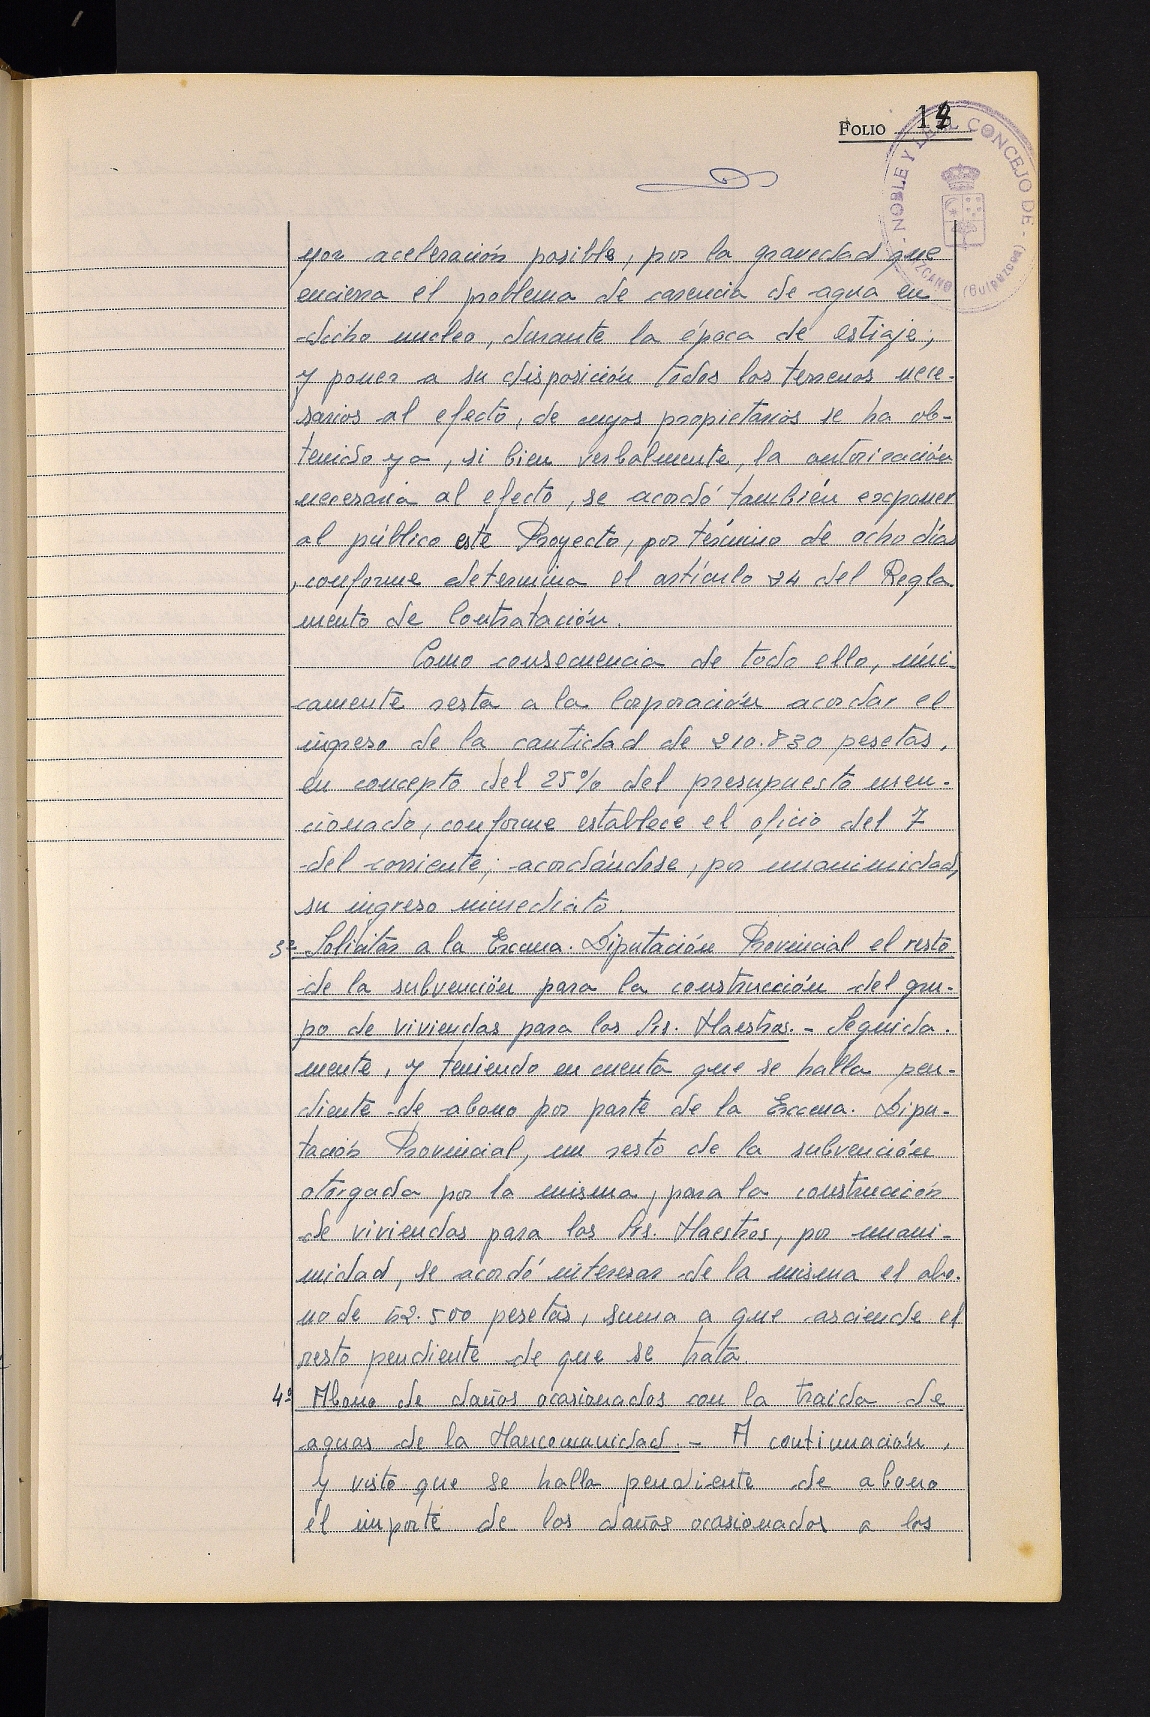 FOLIO 14
NOBLE Y LEAL CONCEJO DE - ZCANO (Guipúzcoa)
yor aceleración posible, por la gravedad que
encierra el problema de carencia de agua en
dicho nucleo, durante la época de estiaje;
y poner a su disposición todos los terrenos nece-
sarios al efecto, de cuyos propietarios se ha ob-
tenido ya, si bien verbalmente, la autorización
necesaria al efecto, se acordó también exponer
al público este Proyecto, por término de ocho días
, conforme determina el artículo 24 del Regla
mento de Contratación.
Como consecuencia de todo ello, úni-
camente resta a la Corporación acordar el
ingreso de la cantidad de 210.830 pesetas,
en concepto del 25% del presupuesto men-
cionado, conforme establece el oficio del 7
del corriente; acordándose, por unanimidad,
su ingreso inmediato.
3º Solicitar a la Excma. Diputación Provincial el resto
de la subvención para la construcción del gru-
po de viviendas para los Srs. Maestros. - Seguida-
mente, y teniendo en cuenta que se halla pen-
diente de abono por parte de la Excma. Dipu-
tación Provincial, un resto de la subvención
otorgada por la misma, para la construcción
de viviendas para los Srs. Maestros, por unani-
midad, se acordó interesar de la misma el abo-
no de 52.500 pesetas, suma a que asciende el
resto pendiente de que se trata.
4º Abono de daños ocasionados con la traida de
aguas de la Mancomunidad. - A continuación,
y visto que se halla pendiente de abono
el importe de los daños ocasionados a los